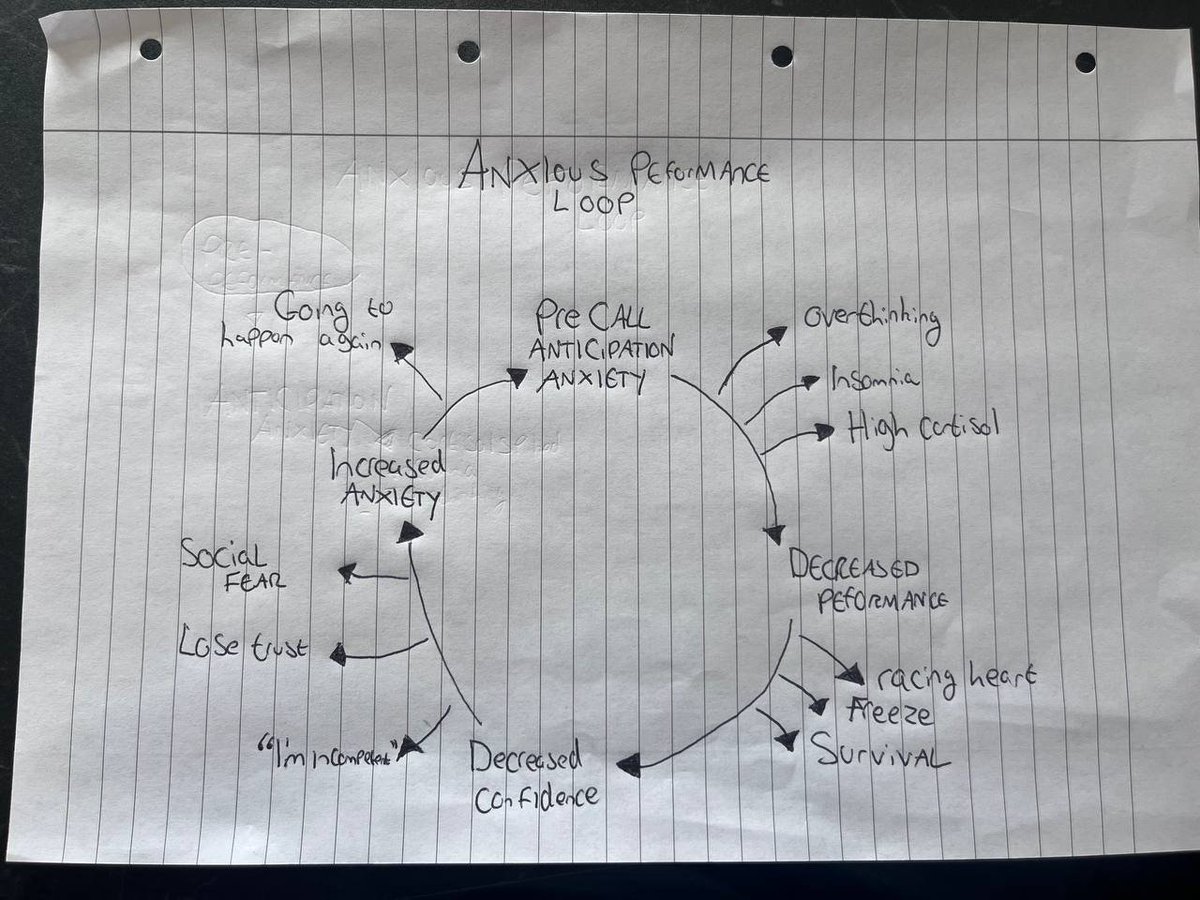 ANXIOUS PEFORMANCE
LOOP
Going to
happen again
Pre CALL
ANTICIPATION
ANXIETY
Overthinking
Insomnia
High cortisol
Increased
ANXIETY
DECREASED
PEFORMANCE
Social
FEAR
Lose trust
racing heart
Freeze
SURVIVAL
"I'm incompetent"
Decreased
Confidence